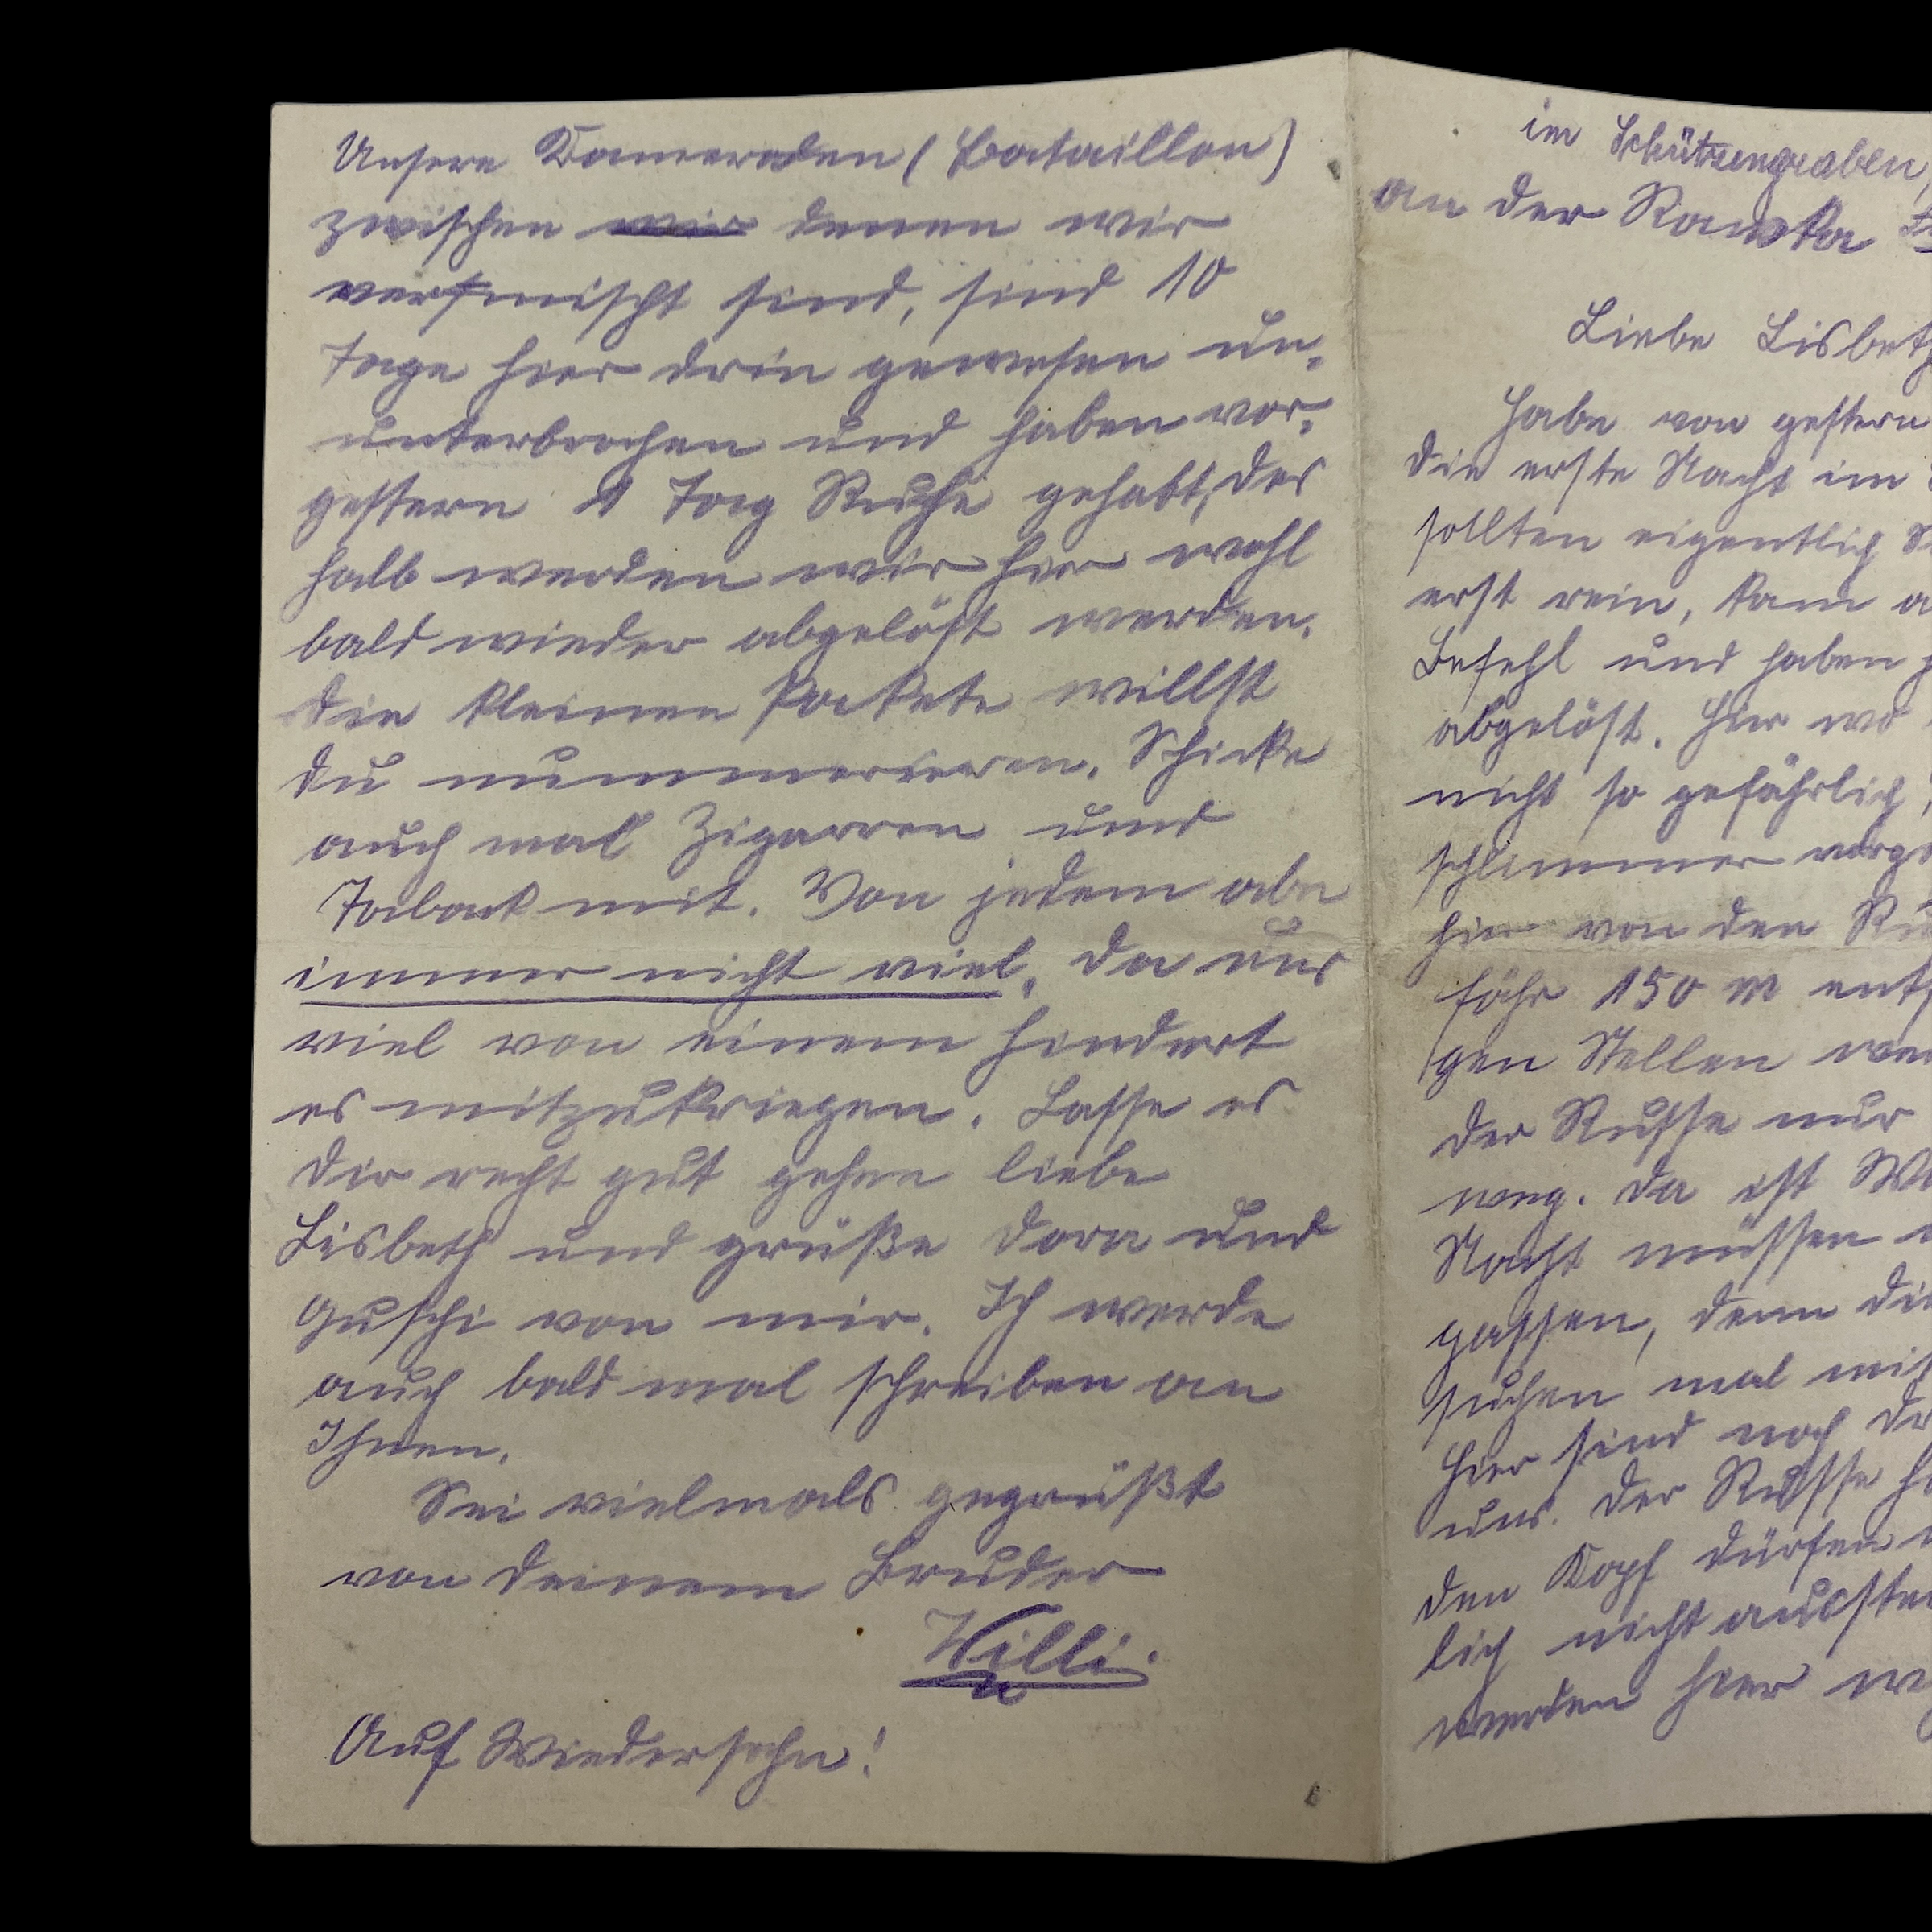 Unsere Kameraden (Bataillon)
zwischen wir denen wir
vermischt sind, sind 10
Tage hier drin gewesen un-
unterbrochen und haben vor-
gestern 1 Tag Ruhe gehabt, des
halb werden wir hier wohl
bald wieder abgelöst werden.
die kleinen Pakete willst
du nummerieren. Schicke
auch mal Zigarren und
Taback mit. Von jedem aber
immer nicht viel, da uns
viel von einem hindert
es mitzukriegen. Lasse es
dir recht gut gehen liebe
Lisbeth und grüße Dora und
Guschi von mir. Ich werde
auch bald mal schreiben an
Ihnen.
Sei vielmals gegrüßt
von deinem Bruder
Willi.
Auf Wiedersehn!
im Schützengraben,
an der Rawka
Liebe Lisbeth
Habe von gestern
die erste Nacht im
sollten eigentlich
erst rein, kam
Befehl und haben
abgelöst. Hier wo
nicht so gefährlich,
schlimmer
hier von den
fähr 150 m
gen Stellen
der Russe nur
weg. da ist
Nacht müssen
passen, denn die
suchen mal mit
hier sind noch
uns. der Russe
den Kopf dürfen
lich nicht
werden hier